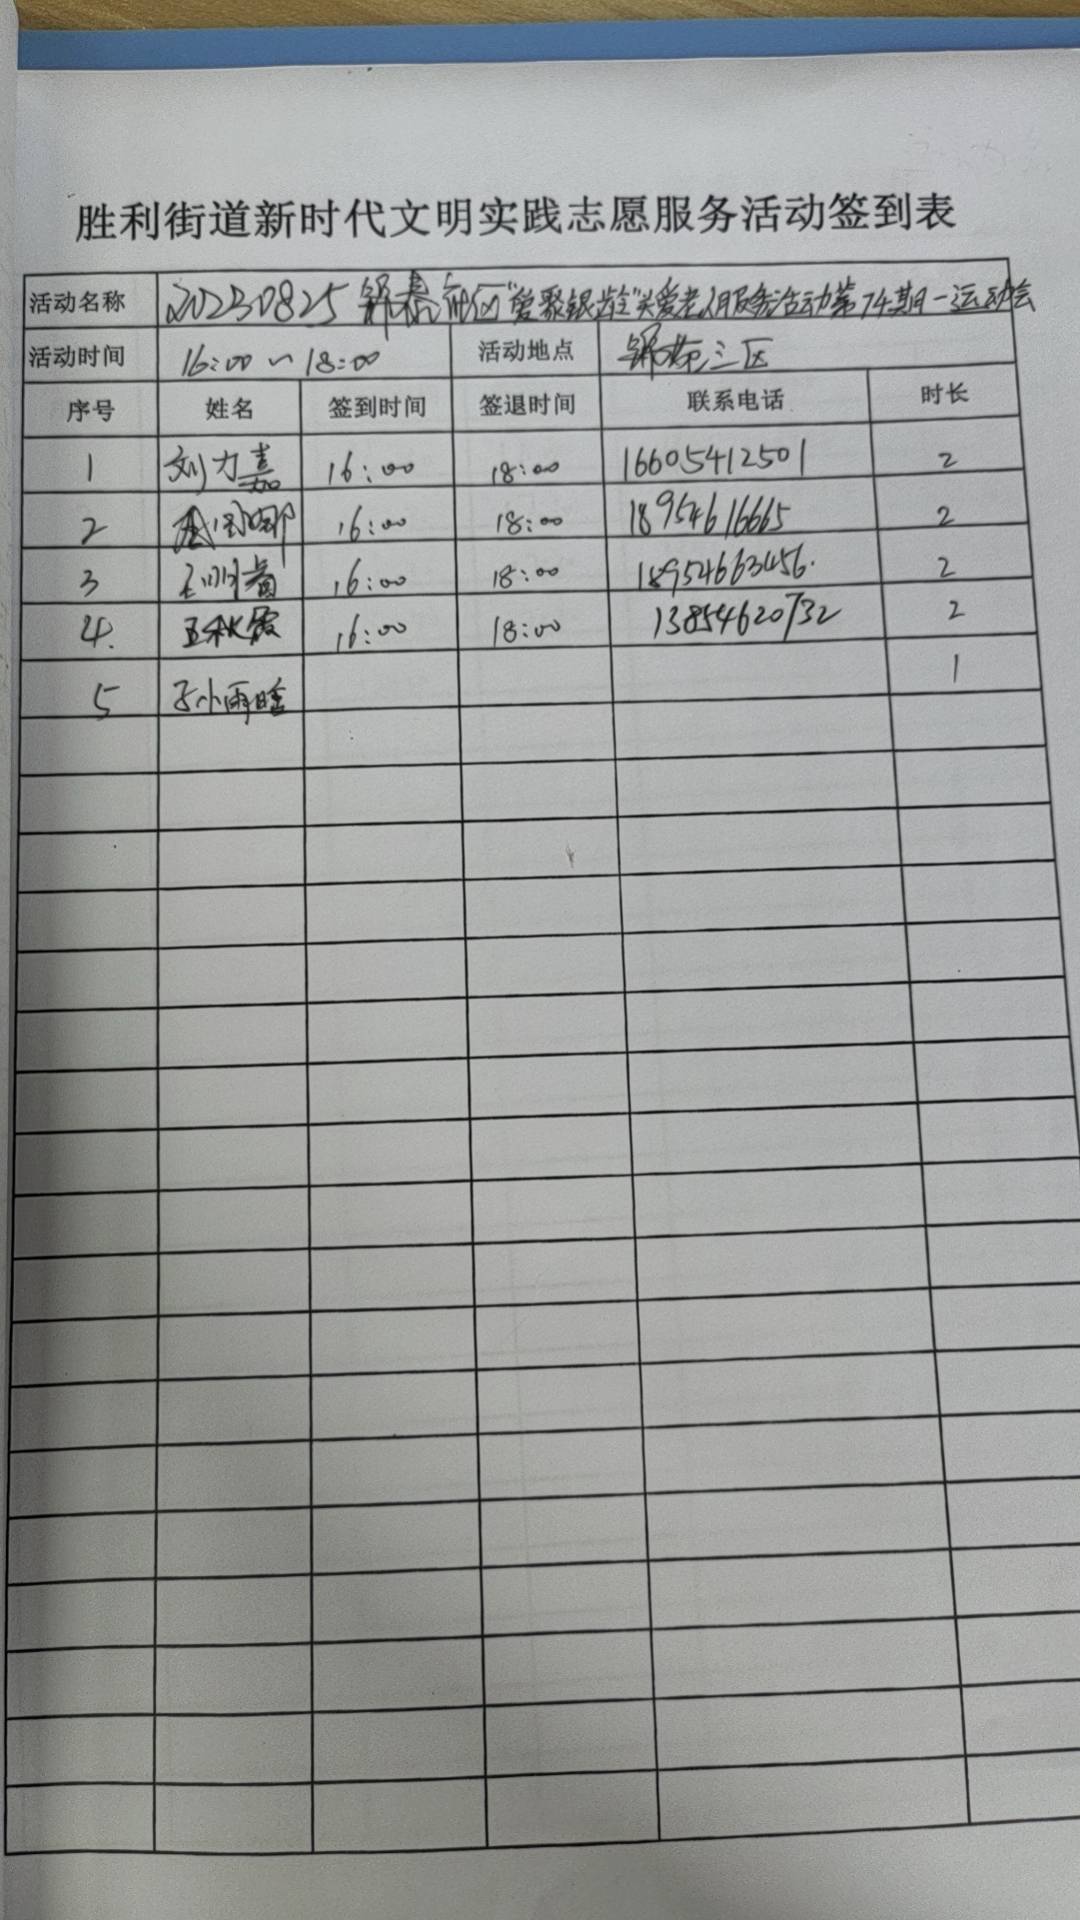 胜利街道新时代文明实践志愿服务活动签到表
活动名称 20230825 锦苑社区"爱聚银龄"关爱老人服务活动第74期—运动会
活动时间 16:00~18:00 活动地点 锦苑三区
序号 姓名 签到时间 签退时间 联系电话 时长
1 刘力嘉 16:00 18:00 16605412501 2
2 16:00 18:00 18954616665 2
3 16:00 18:00 18954663456. 2
4. 王秋霞 16:00 18:00 13854620732 2
5 1